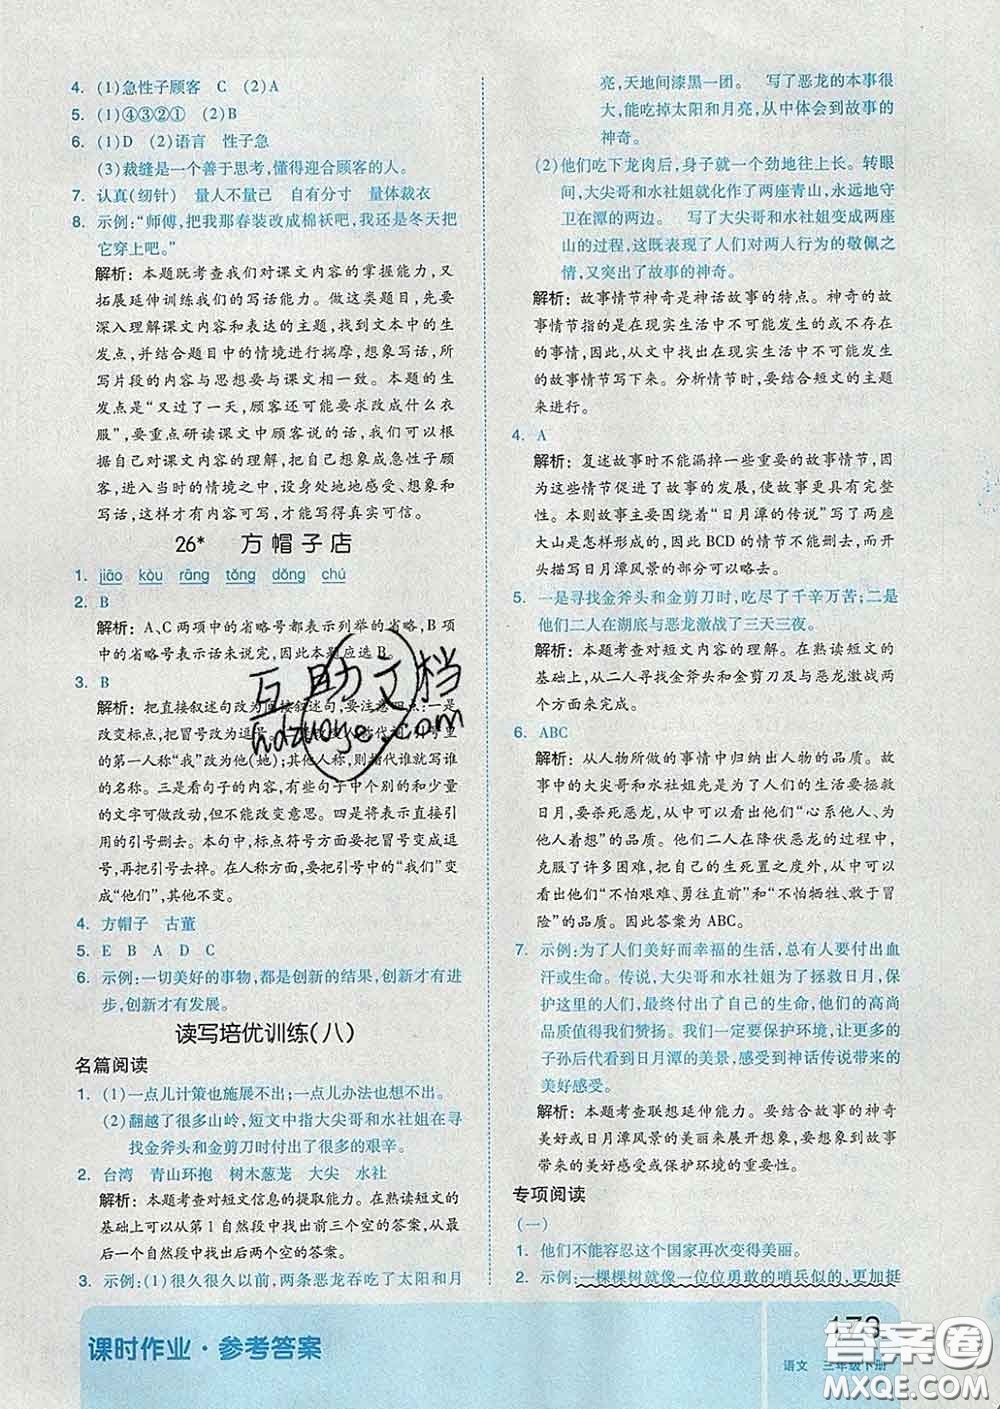 4. (1)急性子顾客 C (2)A
5. (1)④③②① (2)B
6. (1)D (2)语言 性子急
(3)裁缝是一个善于思考,懂得迎合顾客的人。
7. 认真(纫针) 量人不量己 自有分寸 量体裁衣
8. 示例:“师傅,把我那春装改成棉袄吧,我还是冬天把
它穿上吧。”
解析:本题既考查我们对课文内容的掌握能力,又
拓展延伸训练我们的写话能力。做这类题目,先要
深入理解课文内容和表达的主题,找到文本中的生
发点,并结合题目中的情境进行揣摩,想象写话,所
写片段的内容与思想要与课文相一致。本题的生
发点是“又过了一天,顾客还可能要求改成什么衣
服”,要重点研读课文中顾客说的话,我们可以根
据自己对课文内容的理解,把自己想象成急性子顾
客,进入当时的情境之中,设身处地地感受、想象和
写话,这样才有内容可写,才能写得真实可信。
26* 方帽子店
1. jiāo kòu rāng tǒng dǒng chú
2. B
解析:A、C两项中的省略号都表示列举的省略,B项
中的省略号表示话未说完,因此本题应选B。
3. B
解析:把直接叙述句改为间接叙述句,要注意四点:一是
改变标点,把冒号改为逗号。二是改变人称代词,引号里
的第一人称“我”改为他(她);若其他人称,则指代谁就写谁
的名称。三是看句子的内容,有些句子中个别的词可
根据需要进行改变,但不能改变意思。四是将表示直接引
用的引号删去。本句中,标点符号方面要把冒号变成逗
号,再把引号去掉。在人称方面,要把引号中的“我们”变
成“他们”,其他不变。
4. 方帽子 古董
5. E B A D C
6. 示例:一切美好的事物,都是创新的结果,创新才有进
步,创新才有发展。
读写培优训练(八)
名篇阅读
1. (1)一点儿计策也施展不出;一点儿办法也想不出。
(2)翻越了很多山岭,短文中指大尖哥和水社姐在寻
找金斧头和金剪刀时付出了很多的艰辛。
2. 台湾 青山环抱 树木葱茏 大尖 水社
解析:本题考查对短文信息的提取能力。在熟读短文的
基础上可以从第1自然段中找出前三个空的答案,从最
后一个自然段中找出后两个空的答案。
3. 示例:(1)很久很久以前,两条恶龙吞吃了太阳和月
亮,天地间漆黑一团。 写了恶龙的本事很
大,能吃掉太阳和月亮,从中体会到故事的
神奇。
(2)他们吃下龙肉后,身子就一个劲地往上长。转眼
间,大尖哥和水社姐就化作了两座青山,永远地守
卫在潭的两边。 写了大尖哥和水社姐变成两座
山的过程,这既表现了人们对两人行为的敬佩之
情,又突出了故事的神奇。
解析:故事情节神奇是神话故事的特点。神奇的故
事情节指的是在现实生活中不可能发生的或不存在
的事情,因此,从文中找出在现实生活中不可能发生
的故事情节写下来。分析情节时,要结合短文的主题
来进行。
4. A
解析:复述故事时不能漏掉一些重要的故事情节,因
为这些情节促进了故事的发展,使故事更具有完整
性。本则故事主要围绕着“日月潭的传说”写了两座
大山是怎样形成的,因此BCD的情节不能删去,而开
头描写日月潭风景的部分可以略去。
5. 一是寻找金斧头和金剪刀时,吃尽了千辛万苦;二是
他们二人在湖底与恶龙激战了三天三夜。
解析:本题考查对短文内容的理解。在熟读短文的
基础上,从二人寻找金斧头和金剪刀及与恶龙激战两
个方面来写即可。
6. ABC
解析:从人物所做的事情中归纳出人物的品质。故
事中的大尖哥和水社姐先是为了人们的生活要拯救
日月,要杀死恶龙,从这里可以看出他们“心系他人、为
他人着想”的品质。他们二人在降伏恶龙的过程中,
克服了许多困难,把自己的生死置之度外,从中可以
看出他们“不怕艰难、勇往直前”和“不怕牺牲、敢于冒
险”的品质。因此答案为ABC。
7. 示例:为了人们美好而幸福的生活,总有人要付出血
汗或生命。传说,大尖哥和水社姐为了拯救日月,为了
保护这里的人们,最终献出了自己的生命,他们的高尚
品质值得我们赞扬。我们一定要保护环境,让更多的
子孙后代看到日月潭的美景,感受到神话传说带来的
美好感受。
解析:本题考查联想延伸能力。要结合故事的神奇
美好或日月潭风景的美丽来展开想象,要受到故事
带来的美好的感受或保护环境的重要性。
专项阅读
(一)
1. 他们不能容忍这个国家再次变得美丽。
2. 示例:一棵棵树就像一位位勇敢的哨兵似的,更加挺
课时作业·参考答案
173
语文 三年级下册
互助文档
hdzuoye.com
答案圈
MXQE.COM